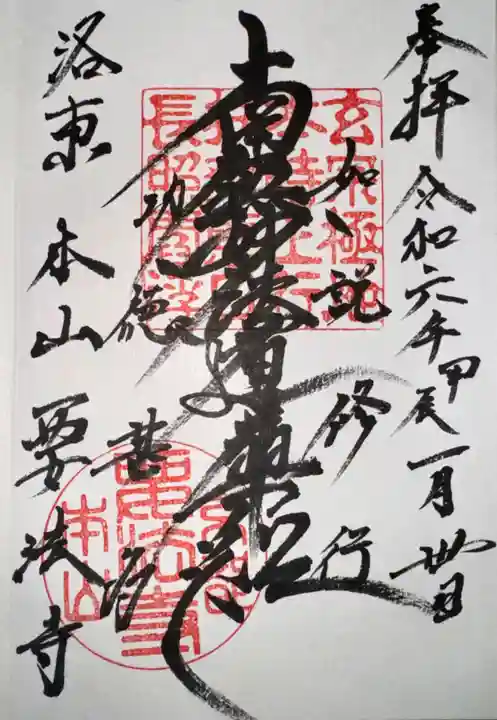 奉拝 令和六年甲辰一月
如説修行
南無妙法蓮華経
功徳甚多
洛東 本山 要法寺